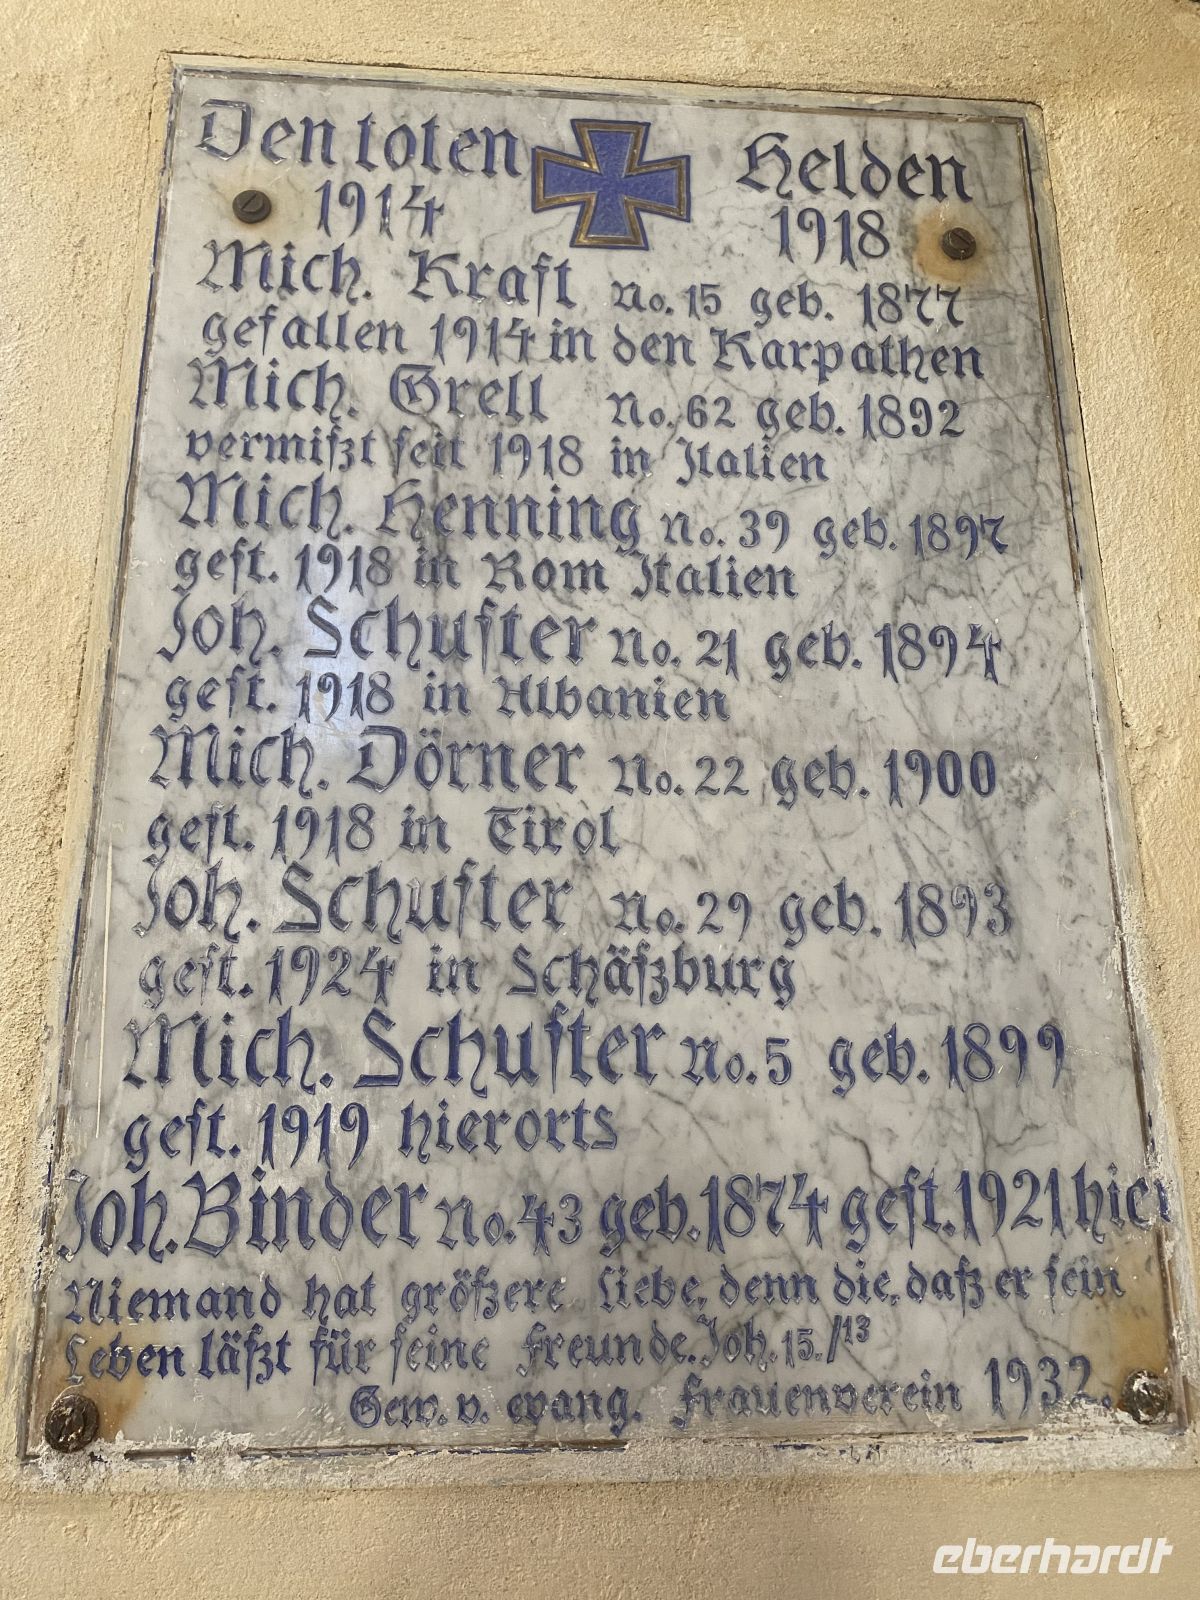 Den toten Helden
1914 1918
Mich. Kraft No. 15 geb. 1877
gefallen 1914 in den Karpathen
Mich. Grell No. 62 geb. 1892
vermißt seit 1918 in Italien
Mich. Henning No. 39 geb. 1897
gest. 1918 in Rom Italien
Joh. Schuster No. 21 geb. 1894
gest. 1918 in Albanien
Mich. Dörner No. 22 geb. 1900
gest. 1918 in Tirol
Joh. Schuster No. 29 geb. 1893
gest. 1924 in Schäßburg
Mich. Schuster No. 5 geb. 1899
gest. 1919 hierorts
Joh. Binder No. 43 geb. 1874 gest. 1921 hier
Niemand hat größere Liebe, denn die, daß er sein
Leben läßt für seine Freunde. Joh. 15./13
Gew. v. evang. Frauenverein 1932.
eberhardt